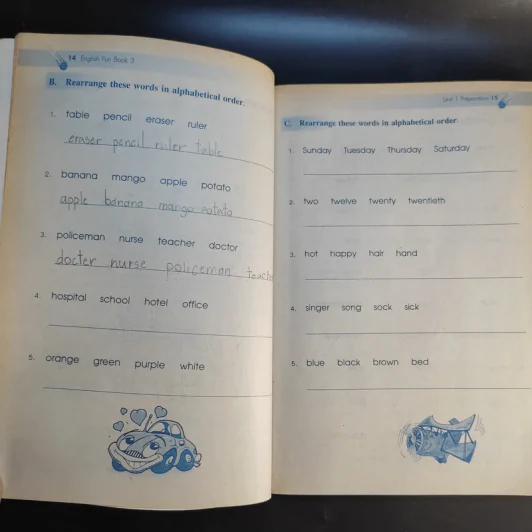 14 English Fun Book 3
B. Rearrange these words in alphabetical order.
1. table pencil eraser ruler
eraser pencil ruler table
2. banana mango apple potato
apple banana mango potato
3. policeman nurse teacher doctor
docter nurse policeman teache
4. hospital school hotel office
5. orange green purple white
Unit 1 Preparation 15
C. Rearrange these words in alphabetical order.
1. Sunday Tuesday Thursday Saturday
2. two twelve twenty twentieth
3. hot happy hair hand
4. singer song sock sick
5. blue black brown bed